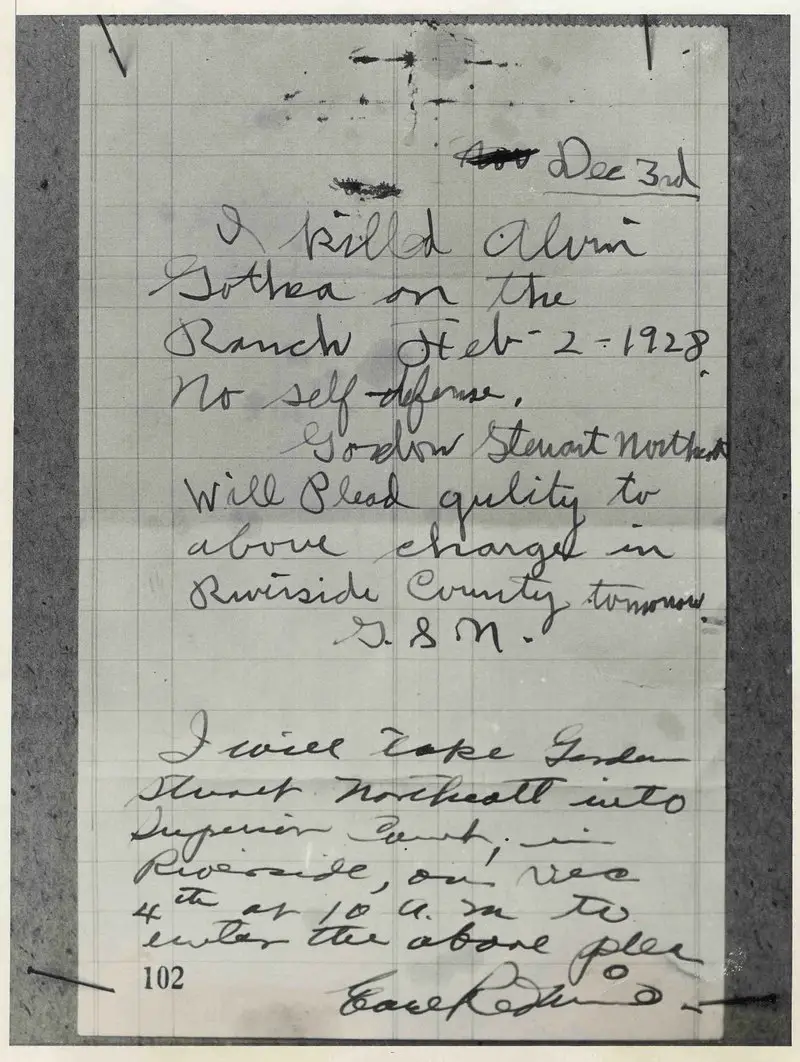 Dec 3rd
I killd Alvin
Gothea on the
Ranch Feb - 2 - 1928
No self-defense.
Gordon Stewart Northcott
Will Plead gulity to
above charge in
Riverside County tomorrow.
G. S N.
I will take Gordon
Stewart Northcott into
Superior Court, in
Riverside, on Dec
4th at 10 A.M to
enter the above plea
102
Earl Redwine